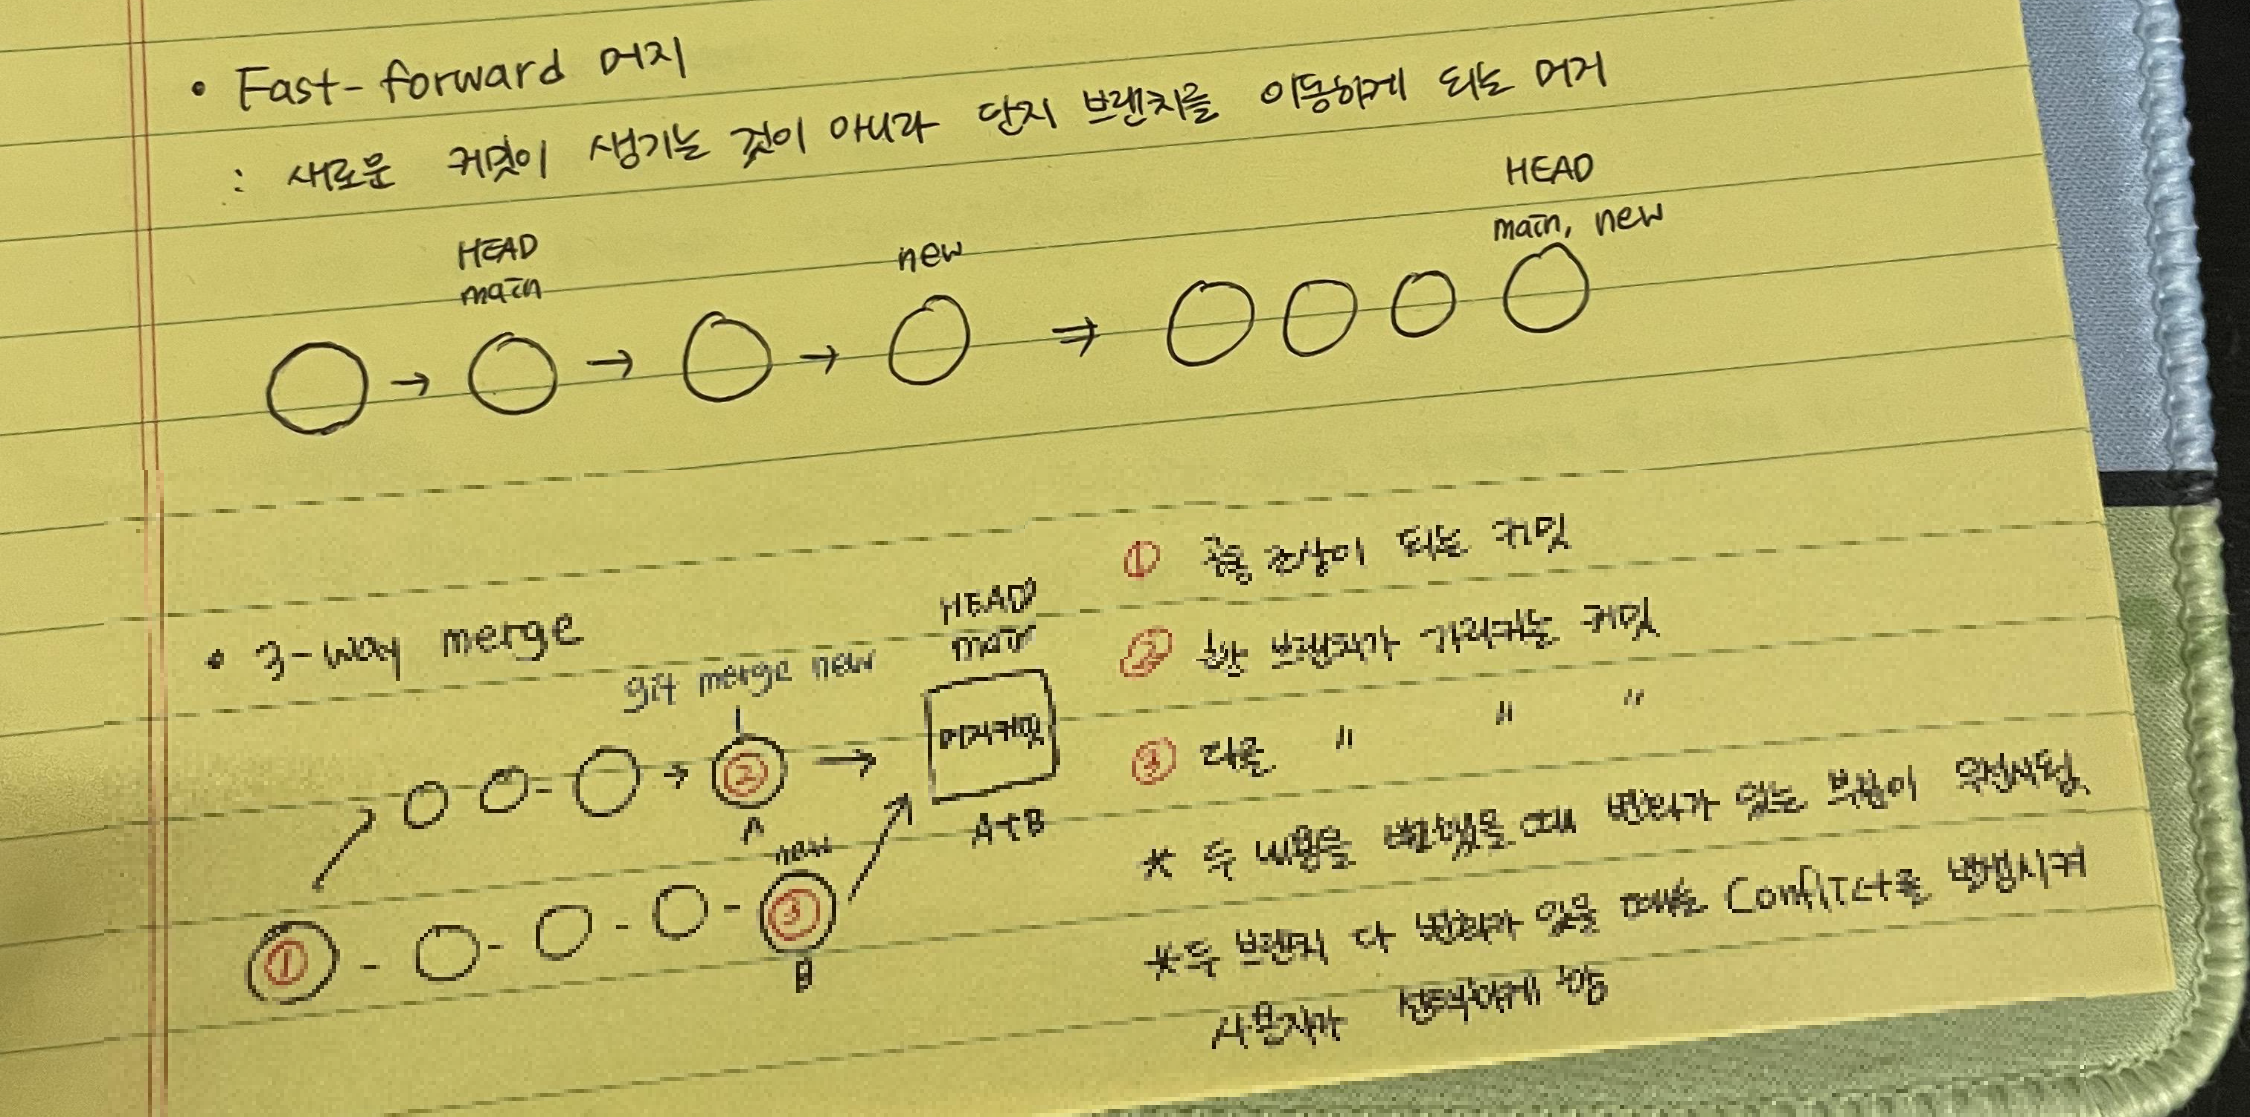 • Fast-forward 머지
: 새로운 커밋이 생기는 것이 아니라 단지 브랜치를 이동하게 되는 머지
HEAD
main
new
HEAD
main, new
• 3-way merge
git merge new
HEAD
main
머지커밋
A+B
②
A
new
①
③
B
① 공통 조상이 되는 커밋
② 한 브랜치가 가리키는 커밋
③ 다른 〃 〃 〃
* 두 내용을 비교했을 때 변화가 있는 부분이 우선시됨
* 두 브랜치 다 변화가 있을 때는 Conflict를 발생시켜
사용자가 선택하게 함